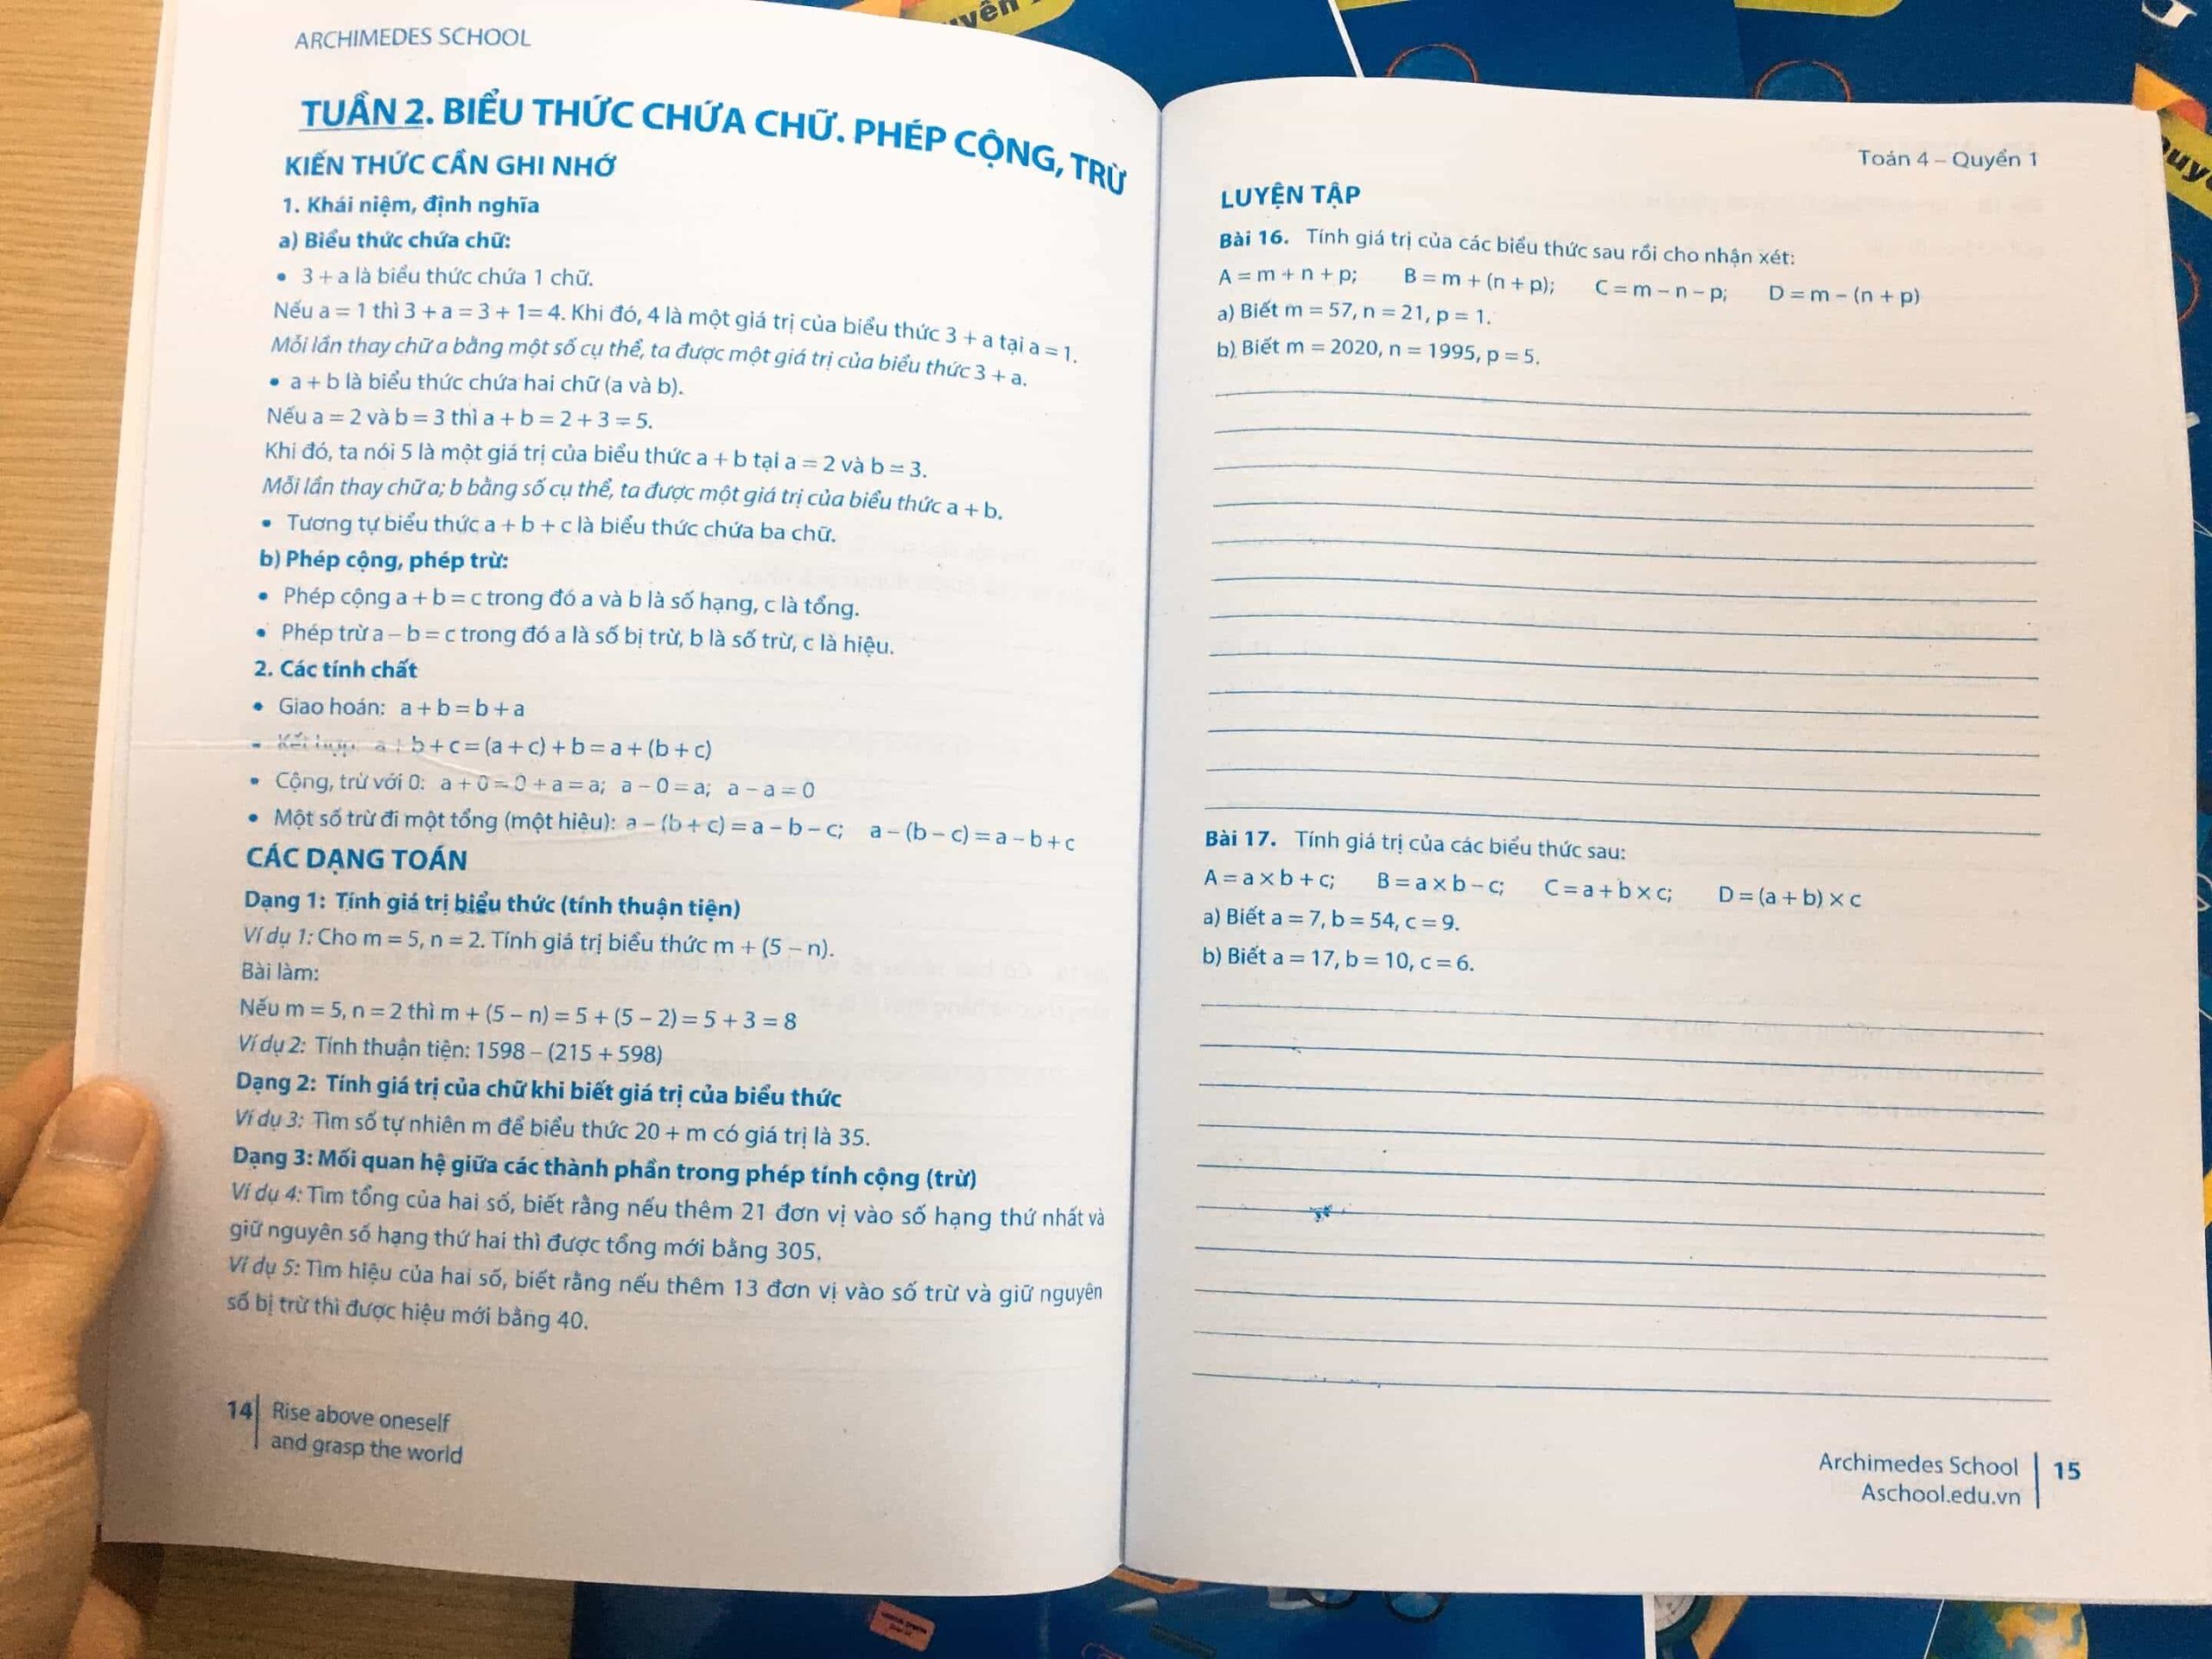 ARCHIMEDES SCHOOL
TUẦN 2. BIỂU THỨC CHỨA CHỮ. PHÉP CỘNG, TRỪ
KIẾN THỨC CẦN GHI NHỚ
1. Khái niệm, định nghĩa
a) Biểu thức chứa chữ:
• 3 + a là biểu thức chứa 1 chữ.
Nếu a = 1 thì 3 + a = 3 + 1= 4. Khi đó, 4 là một giá trị của biểu thức 3 + a tại a = 1.
Mỗi lần thay chữ a bằng một số cụ thể, ta được một giá trị của biểu thức 3 + a.
• a + b là biểu thức chứa hai chữ (a và b).
Nếu a = 2 và b = 3 thì a + b = 2 + 3 = 5.
Khi đó, ta nói 5 là một giá trị của biểu thức a + b tại a = 2 và b = 3.
Mỗi lần thay chữ a; b bằng số cụ thể, ta được một giá trị của biểu thức a + b.
• Tương tự biểu thức a + b + c là biểu thức chứa ba chữ.
b) Phép cộng, phép trừ:
• Phép cộng a + b = c trong đó a và b là số hạng, c là tổng.
• Phép trừ a – b = c trong đó a là số bị trừ, b là số trừ, c là hiệu.
2. Các tính chất
• Giao hoán: a + b = b + a
• Kết hợp: a + b + c = (a + c) + b = a + (b + c)
• Cộng, trừ với 0: a + 0 = 0 + a = a; a – 0 = a; a – a = 0
• Một số trừ đi một tổng (một hiệu): a – (b + c) = a – b – c; a – (b – c) = a – b + c
CÁC DẠNG TOÁN
Dạng 1: Tính giá trị biểu thức (tính thuận tiện)
Ví dụ 1: Cho m = 5, n = 2. Tính giá trị biểu thức m + (5 – n).
Bài làm:
Nếu m = 5, n = 2 thì m + (5 – n) = 5 + (5 – 2) = 5 + 3 = 8
Ví dụ 2: Tính thuận tiện: 1598 – (215 + 598)
Dạng 2: Tính giá trị của chữ khi biết giá trị của biểu thức
Ví dụ 3: Tìm số tự nhiên m để biểu thức 20 + m có giá trị là 35.
Dạng 3: Mối quan hệ giữa các thành phần trong phép tính cộng (trừ)
Ví dụ 4: Tìm tổng của hai số, biết rằng nếu thêm 21 đơn vị vào số hạng thứ nhất và
giữ nguyên số hạng thứ hai thì được tổng mới bằng 305.
Ví dụ 5: Tìm hiệu của hai số, biết rằng nếu thêm 13 đơn vị vào số trừ và giữ nguyên
số bị trừ thì được hiệu mới bằng 40.
14 Rise above oneself
and grasp the world
Toán 4 – Quyển 1
LUYỆN TẬP
Bài 16. Tính giá trị của các biểu thức sau rồi cho nhận xét:
A = m + n + p; B = m + (n + p); C = m – n – p; D = m – (n + p)
a) Biết m = 57, n = 21, p = 1.
b) Biết m = 2020, n = 1995, p = 5.
Bài 17. Tính giá trị của các biểu thức sau:
A = a × b + c; B = a × b – c; C = a + b × c; D = (a + b) × c
a) Biết a = 7, b = 54, c = 9.
b) Biết a = 17, b = 10, c = 6.
Archimedes School 15
Aschool.edu.vn